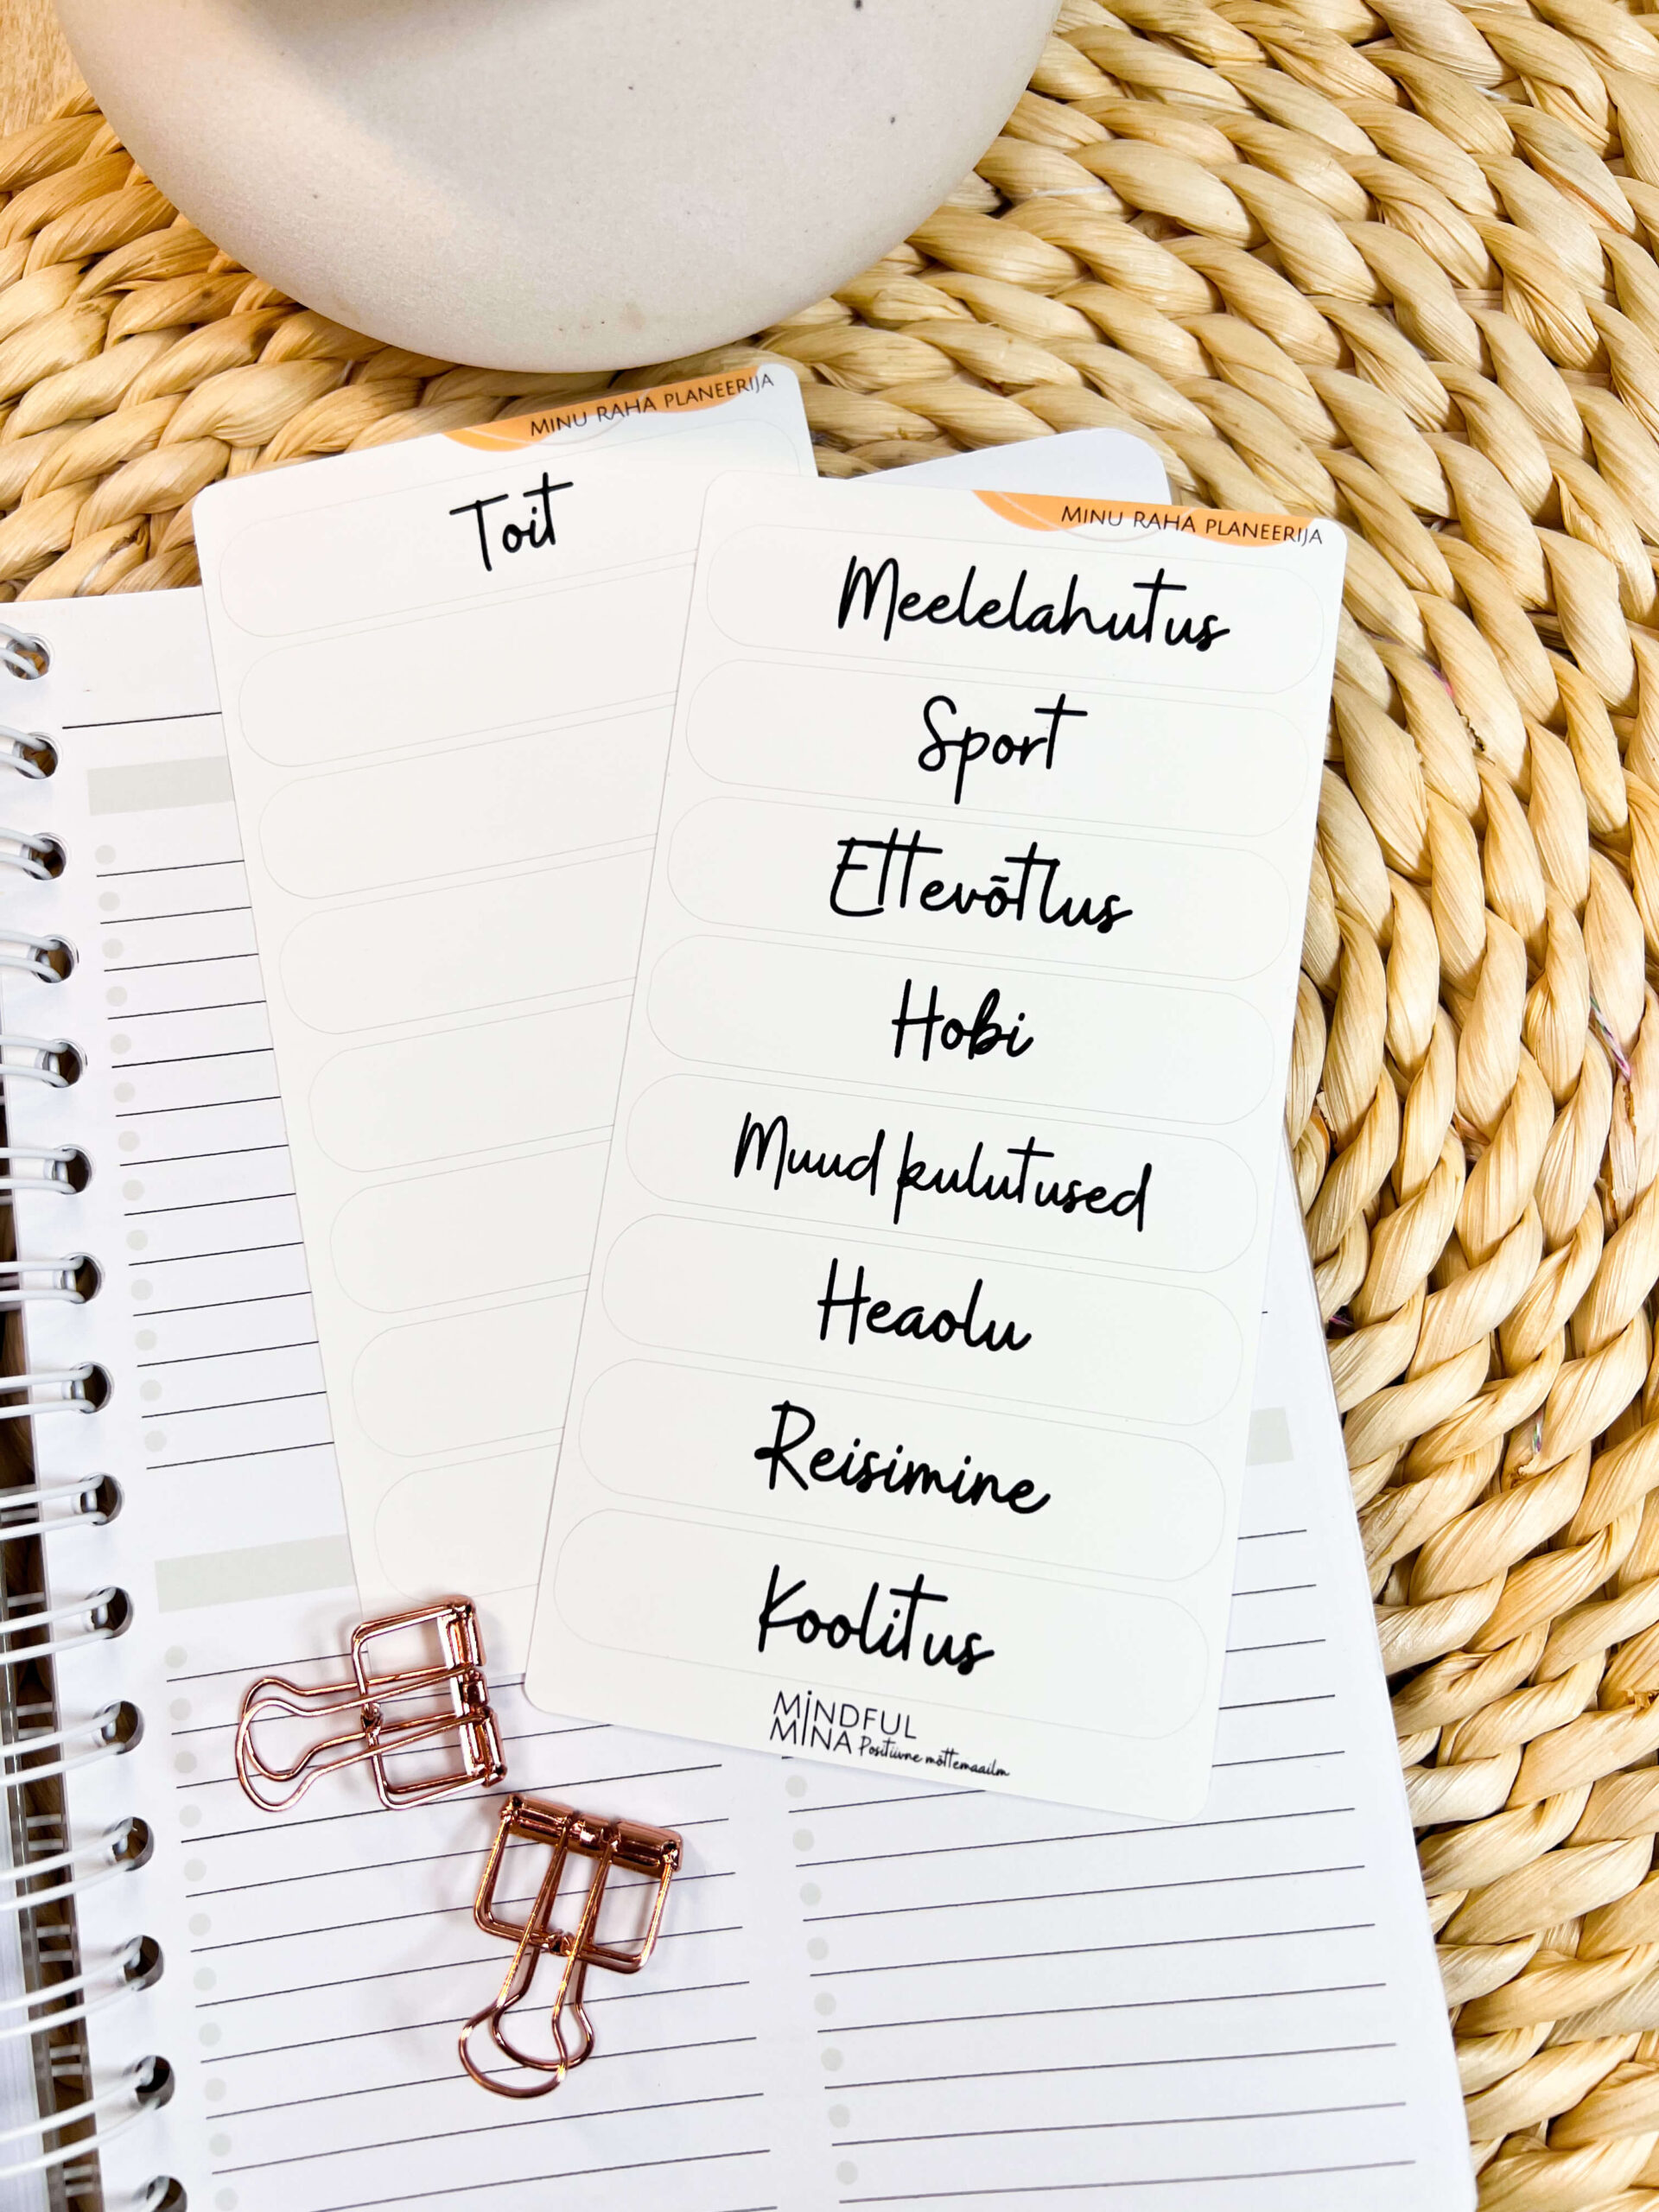 MINU RAHA PLANEERIJA
Toit
MINU RAHA PLANEERIJA
Meelelahutus
Sport
Ettevõtlus
Hobi
Muud kulutused
Heaolu
Reisimine
Koolitus
MINDFUL
MINA Positiivne mõttemaailm